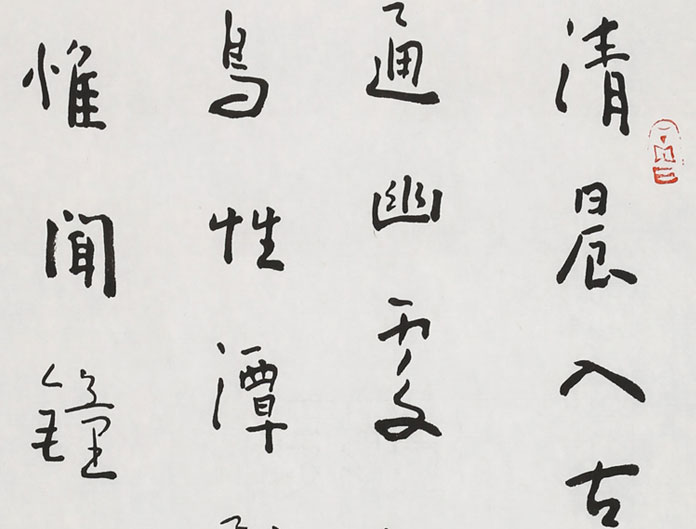 清晨入古
通幽處
鳥性潭
惟聞鐘